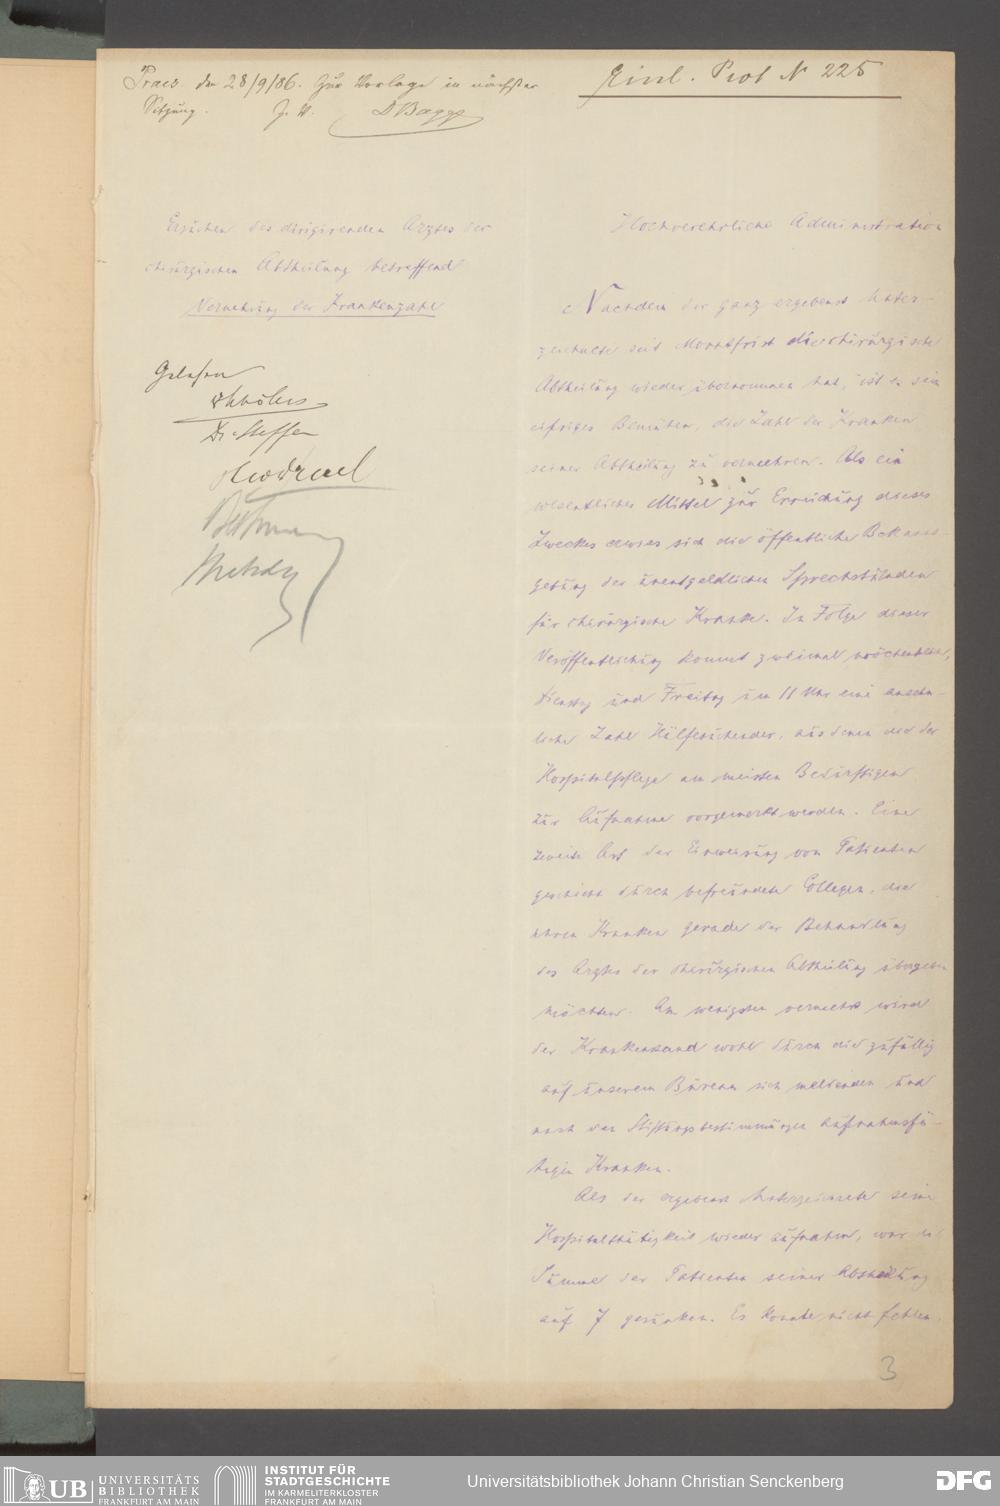 Praes. den 28/9/86. Zur Vorlage in nächster
Sitzung. J. V.
Einl. Prot N 225
Ersuchen des dirigirenden Arztes der
chirurgischen Abtheilung betreffend
Vermehrung der Krankenzahl
Gelesen
Hochverehrliche Administration
Nachdem der ganz ergebenst Unter-
zeichnete seit Monatsfrist die chirurgische
Abtheilung wieder übernommen hat, ist es sein
eifriges Bemühen, die Zahl der Kranken
seiner Abtheilung zu vermehren. Als ein
wesentliches Mittel zur Erreichung dieses
Zweckes erwies sich die öffentliche Bekannt-
gebung der unentgeldlichen Sprechstunden
für chirurgische Kranke. In Folge dieser
Veröffentlichung kommt zweimal wöchentlich,
Dienstag und Freitag um 11 Uhr eine ansehn-
liche Zahl Hülfesuchender, aus denen die der
Hospitalpflege am meisten Bedürftigen
zur Aufnahme vorgemerkt werden. Eine
zweite Art der Einweisung von Patienten
geschieht durch befreundete Collegen, die
ihren Kranken gerade der Behandlung
des Arztes der chirurgischen Abtheilung übergeben
möchten. Am wenigsten vermehrt wird
der Krankenstand wohl durch die zufällig
auf unserem Bureau sich meldenden und
nach den Stiftungsbestimmungen aufnahmsfä-
higen Kranken.
Als der ergebenst Unterzeichnete seine
Hospitalthätigkeit wieder aufnahm, war die
Summe der Patienten seiner Abtheilung
auf 7 gesunken. Es konnte nicht fehlen,
3
UB UNIVERSITÄTS
BIBLIOTHEK
FRANKFURT AM MAIN
INSTITUT FÜR
STADTGESCHICHTE
IM KARMELITERKLOSTER
FRANKFURT AM MAIN
Universitätsbibliothek Johann Christian Senckenberg
DFG